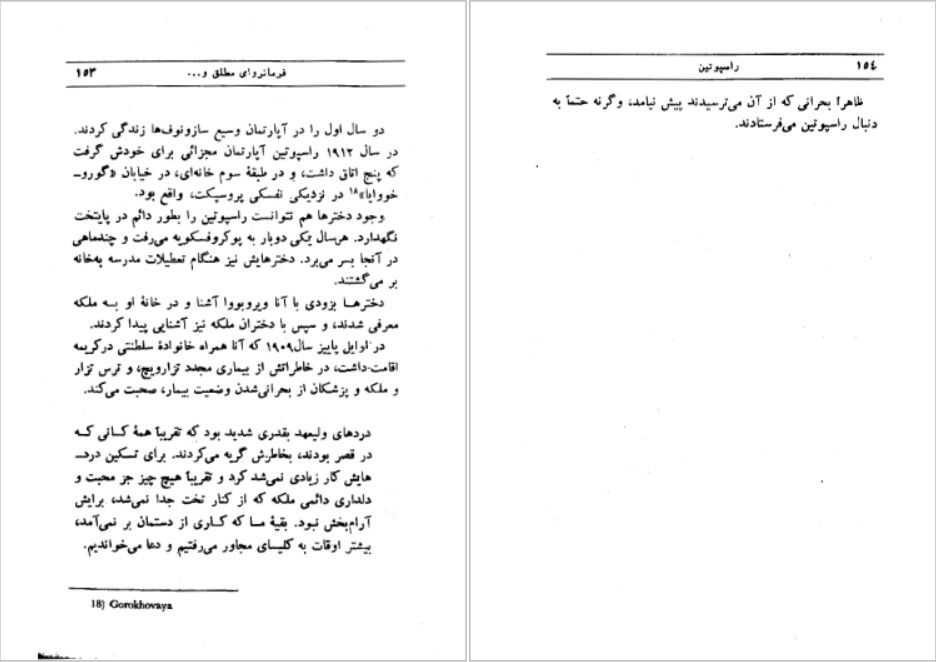 فرمانروای مطلق و... ۱۵۳
دو سال اول را در آپارتمان وسیع سازونوف‌ها زندگی کردند.
در سال ۱۹۱۲ راسپوتین آپارتمان مجزائی برای خودش گرفت
که پنج اتاق داشت، و در طبقهٔ سوم خانه‌ای، در خیابان «گورو-
خووایا»۱۸ در نزدیکی نفسکی پروسپکت، واقع بود.
وجود دخترها هم نتوانست راسپوتین را بطور دائم در پایتخت
نگهدارد. هرسال یکی دوبار به پوکروفسکویه می‌رفت و چندماهی
در آنجا بسر می‌برد. دخترهایش نیز هنگام تعطیلات مدرسه به‌خانه
بر می‌گشتند.
دخترها بزودی با آنا ویروبووا آشنا و در خانهٔ او به ملکه
معرفی شدند، و سپس با دختران ملکه نیز آشنایی پیدا کردند.
در اوایل پاییز سال ۱۹۰۹ که آنا همراه خانوادهٔ سلطنتی درکریمه
اقامت داشت، در خاطراتش از بیماری مجدد تزارویچ، و ترس تزار
و ملکه و پزشکان از بحرانی‌شدن وضعیت بیمار، صحبت می‌کند.
دردهای ولیعهد بقدری شدید بود که تقریباً همهٔ کسانی که
در قصر بودند، بخاطرش گریه می‌کردند. برای تسکین درد-
هایش کار زیادی نمی‌شد کرد و تقریباً هیچ چیز جز محبت و
دلداری دائمی ملکه که از کنار تخت جدا نمی‌شد، برایش
آرام‌بخش نبود. بقیهٔ ما که کاری از دستمان بر نمی‌آمد،
بیشتر اوقات به کلیسای مجاور می‌رفتیم و دعا می‌خواندیم.
18) Gorokhovaya
۱۵۴ راسپوتین
ظاهراً بحرانی که از آن می‌ترسیدند پیش نیامد، وگرنه حتماً به
دنبال راسپوتین می‌فرستادند.